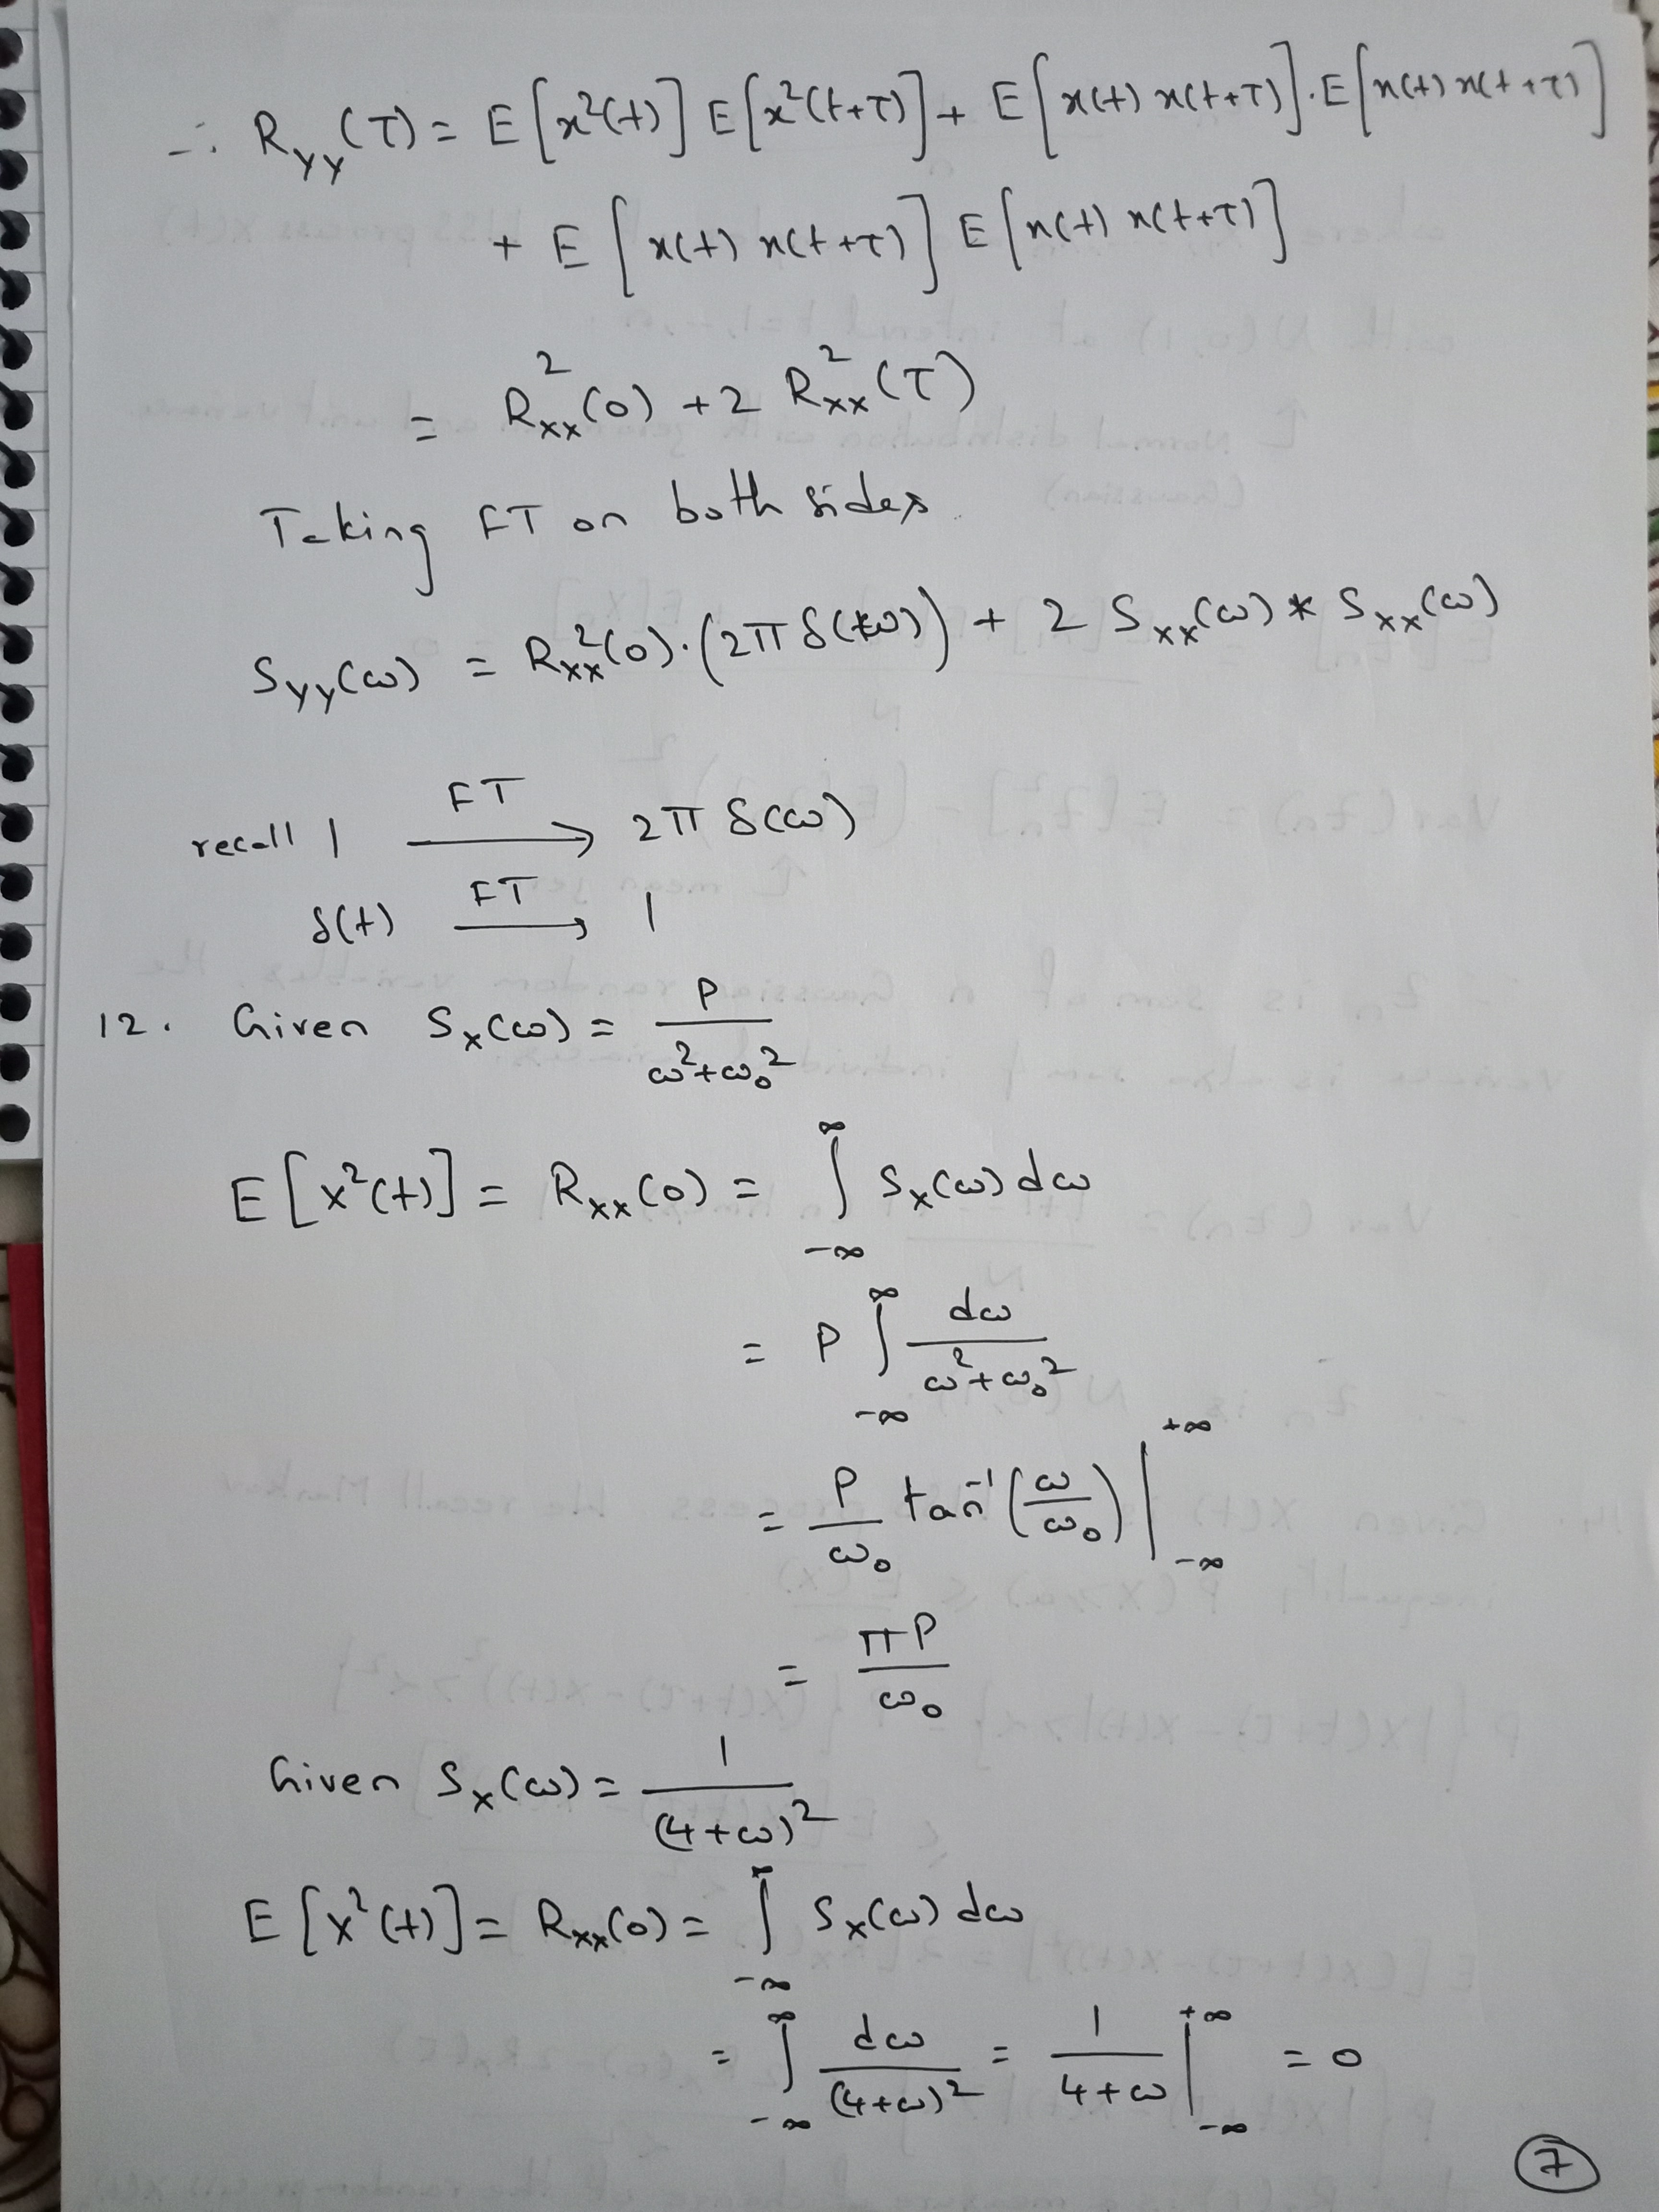 ∴ R_YY(τ) = E[x²(t)] E[x²(t+τ)] + E[x(t) x(t+τ)]·E[x(t) x(t+τ)]
+ E[x(t) x(t+τ)] E[x(t) x(t+τ)]
= R²_XX(0) + 2 R²_XX(τ)
Taking FT on both sides
S_YY(ω) = R²_XX(0)·(2π δ(ω)) + 2 S_XX(ω) * S_XX(ω)
recall 1 —FT→ 2π δ(ω)
δ(t) —FT→ 1
12. Given S_X(ω) = P / (ω² + ω₀²)
E[X²(t)] = R_XX(0) = ∫_{-∞}^{∞} S_X(ω) dω
= P ∫_{-∞}^{∞} dω / (ω² + ω₀²)
= P/ω₀ tan⁻¹(ω/ω₀) |_{-∞}^{+∞}
= πP/ω₀
Given S_X(ω) = 1 / (4+ω)²
E[X²(t)] = R_XX(0) = ∫_{-∞}^{∞} S_X(ω) dω
= ∫_{-∞}^{∞} dω / (4+ω)² = 1/(4+ω) |_{-∞}^{+∞} = 0
7